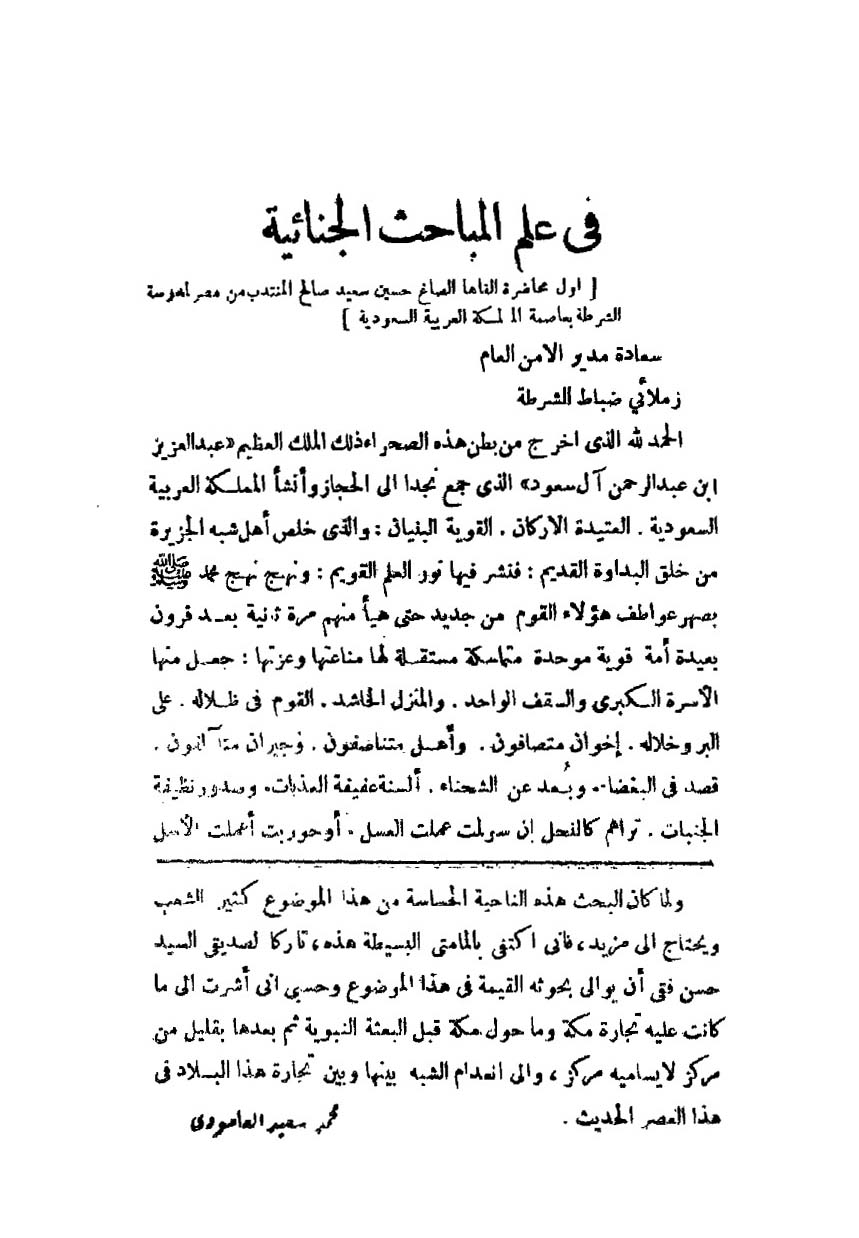 فى علم المباحث الجنائية
[ اول محاضرة القاها الصاغ حسين سعيد صالح المنتدب من مصر لمدرسة
الشرطة بعاصمة المملكة العربية السعودية ]
سعادة مدير الامن العام
زملائي ضباط الشرطة
الحمد لله الذى اخرج من بطن هذه الصحراء ذلك الملك العظيم «عبدالعزيز
ابن عبدالرحمن آل سعود» الذى جمع نجدا الى الحجاز وأنشأ المملكة العربية
السعودية . العتيدة الاركان . القوية البنيان : والذى خلص أهل شبه الجزيرة
من خلق البداوة القديم : فنشر فيها نور العلم القويم : ونهج نهج محمد ﷺ
بصهر عواطف هؤلاء القوم من جديد حتى هيأ منهم مرة ثانية بعد قرون
بعيدة أمة قوية موحدة متماسكة مستقلة لها مناعتها وعزتها : جعل منها
الأسرة الكبرى والسقف الواحد . والمنزل الحاشد . القوم فى ظلاله . على
البر وخلاله . إخوان متصافون . وأهل متناصفون . وجيران متآلفون .
قصد فى البغضاء . وبُعد عن الشحناء . ألسنة عفيفة العذبات . وصدور نظيفة
الجنبات . تراهم كالنحل إن سولمت عملت العسل . أو حوربت أعملت الأسل
ولما كان البحث هذه الناحية الحساسة من هذا الموضوع كثير الشعب
ويحتاج الى مزيد ، فانى اكتفى بالمامتى البسيطة هذه ، تاركا لصديقى السيد
حسن فتى أن يوالى بحوثه القيمة فى هذا الموضوع وحسبى انى أشرت الى ما
كانت عليه تجارة مكة وما حول مكة قبل البعثة النبوية ثم بعدها بقليل من
مركز لايساميه مركز ، والى انعدام الشبه بينها وبين تجارة هذا البلاد فى
هذا العصر الحديث .
محمد سعيد العامودى